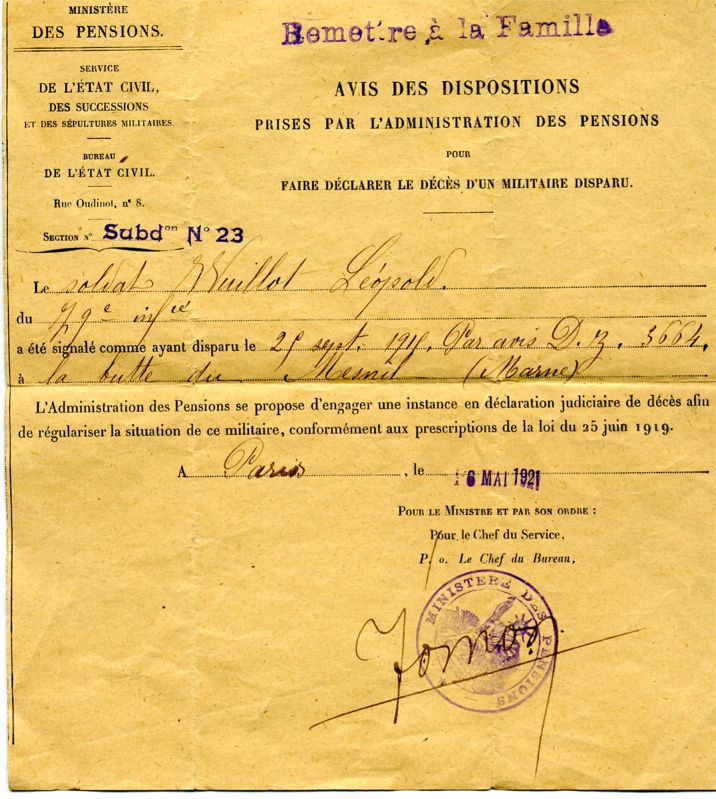 MINISTÈRE
DES PENSIONS.
SERVICE
DE L'ÉTAT CIVIL,
DES SUCCESSIONS
ET DES SÉPULTURES MILITAIRES.
BUREAU
DE L'ÉTAT CIVIL.
Rue Oudinot, n° 8.
SECTION N° Subdon N° 23
Remettre à la Famille
AVIS DES DISPOSITIONS
PRISES PAR L'ADMINISTRATION DES PENSIONS
POUR
FAIRE DÉCLARER LE DÉCÈS D'UN MILITAIRE DISPARU.
Le soldat Wuillot Léopold.
du 79e infie
a été signalé comme ayant disparu le 25 sept. 1915. Par avis D. 3664.
à la butte du Mesnil (Marne)
L'Administration des Pensions se propose d'engager une instance en déclaration judiciaire de décès afin
de régulariser la situation de ce militaire, conformément aux prescriptions de la loi du 25 juin 1919.
A Paris, le 16 MAI 1921
POUR LE MINISTRE ET PAR SON ORDRE :
Pour le Chef du Service,
P. o. Le Chef du Bureau,
MINISTÈRE DES PENSIONS